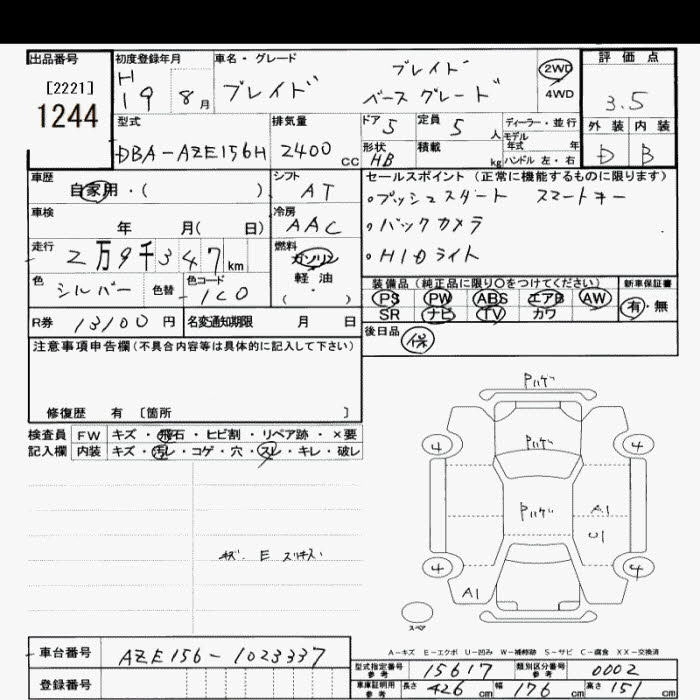 出品番号
[2221]
1244
初度登録年月
H
19 8月
車名・グレード
ブレイド
ブレイド
ベースグレード
2WD
4WD
評価点
3.5
外装 内装
D B
型式
DBA-AZE156H
排気量
2400 cc
ドア 5
定員 5 人
形状 HB
積載 kg
ディーラー・並行
モデル
年式 年
ハンドル 左・右
車歴
自家用・( )
シフト
AT
車検
年 月( 日)
冷房
AAC
走行
2万9千347 km
燃料
ガソリン
軽油
( ・ )
色
シルバー
色替
色コード
1C0
R券 13100 円
名変通知期限 月 日
セールスポイント (正常に機能するものに限ります)
・プッシュスタート スマートキー
・バックカメラ
・HIDライト
装備品 (純正品に限り○をつけてください)
PS PW ABS エアB AW
SR ナビ TV カワ
新車保証書
有・無
後日品
保
注意事項申告欄 (不具合内容等は具体的に記入して下さい)
修復歴 有 [箇所 ]
検査員
記入欄
FW キズ・飛石・ヒビ割・リペア跡・×要
内装 キズ・汚レ・コゲ・穴・スレ・キレ・破レ
キズ. E スリキズ
Pハゲ
Pハゲ
Pハゲ
4
4
A1
U1
4
4
A1
スペア
A-キズ E-エクボ U-凹み W-補修跡 S-サビ C-腐食 XX-交換済
車台番号
AZE156-1023337
登録番号
型式指定番号
参考
15617
類別区分番号
参考
0002
車庫証明用
参考
長さ 426 cm
幅 176 cm
高さ 151 cm